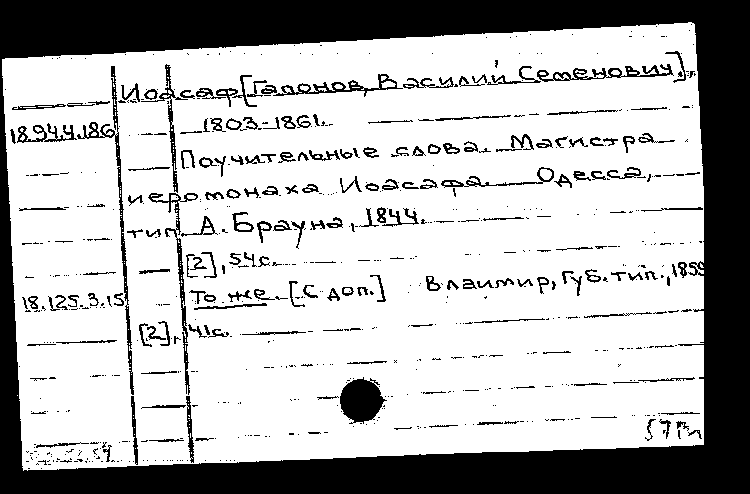 Иоасаф [Гапонов, Василий Семенович].
18.94.4.186 1803-1861.
Поучительные слова. Магистра
иеромонаха Иоасафа. Одесса,
тип. А. Брауна, 1844.
[2], 54 с.
18.125.3.15 То же. [С доп.] Влаимир, Губ. тип., 1859
[2], 41 с.